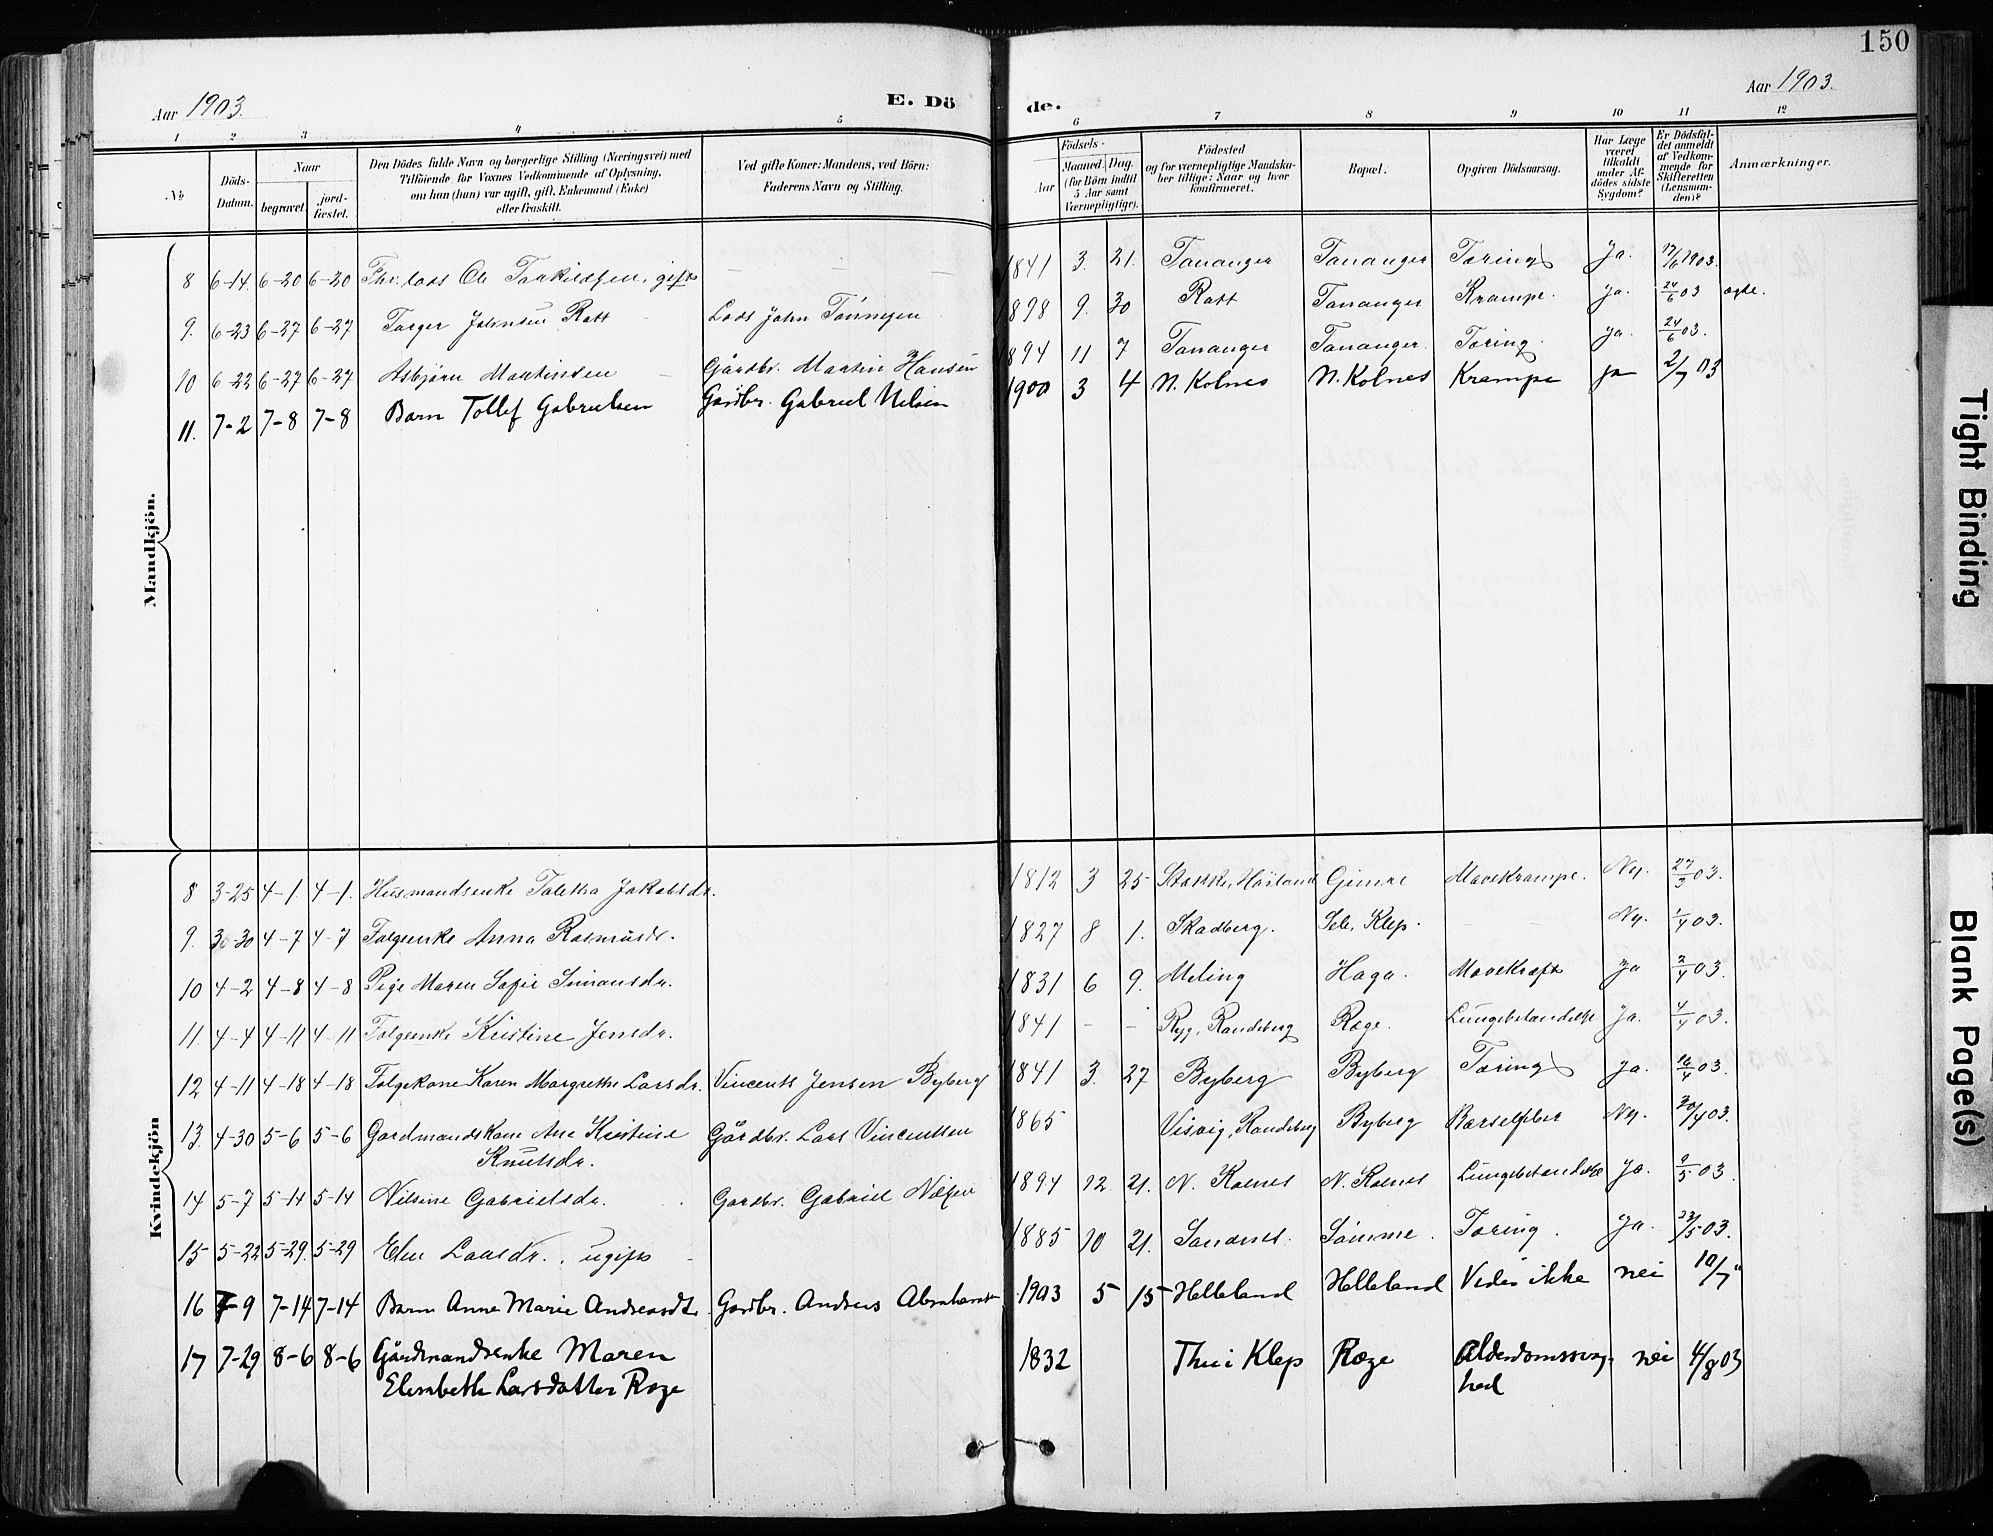 150
Aar 1903. E. Dö de. Aar 1903.
1 2 3 4 5 6 7 8 9 10 11 12
No Döds-Datum. Naar begravet. jord-fæstet. Den Dödes fulde Navn og borgerlige Stilling (Næringsvei) med Tilföiende for Voxnes Vedkommende af Oplysning, om han (hun) var ugift, gift, Enkemand (Enke) eller fraskilt. Ved gifte Koner: Mandens, ved Börn: Faderens Navn og Stilling. Födsels- Aar Maaned. Dag. (for Börn indtil 5 Aar samt Værnepligtige). Födested og for værnepligtige Mandska-ber tillige: Naar og hvor konfirmeret. Bopæl. Opgiven Dödsaarsag. Har Læge været tilkaldt under Af-dödes sidste Sygdom? Er Dödsfal-det anmeldt af Vedkom-mende for Skifteretten (Lensman-den)? Anmærkninger.
Mandkjön.
8 6-14. 6-20 6-20 Fhv. lods Ole Torkildsen, gift 1841 3. 21. Tananger Tananger Tæring Ja. 17/6 1903.
9. 6-23 6-27 6-27 Torger Johnsen Rott Lods John Tönnesen 1898 9. 30 Rott Tananger Krampe. Ja. 24/6 03 ægte.
10 6-22 6-27 6-27 Asbjörn Martinsen Gårdbr. Martin Hansen 1894 11 7 Tananger Tananger. Tæring. Ja. 24/6 03.
11. 7-2 7-8 7-8 Barn Tollef Gabrielsen Gårdbr. Gabriel Nilsen 1900 3 4 N. Kolnes N. Kolnes Krampe ja 2/7 03
Kvindekjön
8 3-25 4-1. 4-1. Husmandsenke Taletha Jakobsdr. 1812 3 25 Stokke, Høiland Gimre Mavekrampe. Nej. 27/3 03.
9. 30 4-7 4-7 Folgeenke Anna Rasmusdr. 1827 8 1. Skadberg. Sele, Klep. Nej. 1/4 03.
10 4-2 4-8 4-8 Pige Maren Sofie Simonsdr. 1831 6 9. Meling Haga. Mavekræft Ja 2/4 03.
11. 4-4 4-11 4-11 Folgeenke Kristine Jensdr. 1841 - - Ryg, Randeberg Ræge. Lungebetændelse Ja. 4/4 03.
12 4-11 4-18 4-18 Folgekone Karen Margrethe Larsdr. Vincents Jensen Byberg 1841 3. 27 Byberg Byberg Tæring Ja. 16/4 03.
13. 4-30 5-6 5-6 Gardmandskone Ane Kristine Gårdbr. Lars Vincentsen 1865 Visvig, Randeberg Byberg Barselfeber Nej. 30/4 03.
Knutsdr.
14 5-7 5-14 5-14 Nilsine Gabrielsdr. Gardbr. Gabriel Nilsen 1894 12 21. N. Kolnes N. Kolnes Lungebetændelse Ja. 9/5 03.
15 5-22 5-29. 5-29 Elen Larsdr., ugift 1885 10 21. Sandnes. Sömme. Tæring. Ja. 23/5 03.
16 7-9 7-14 7-14 Barn Anne Marie Andreasdtr. Gårdbr. Andreas Abrahamsen 1903 5 15 Helleland Helleland Vides ikke nei 10/7 "
17 7-29 8-6 8-6 Gårdmandsenke Maren 1832 Thu i Klep Ræge Alderdomssvag- nei 4/8 03
Elisabeth Larsdatter Ræge hed
Tight Binding
Blank Page(s)